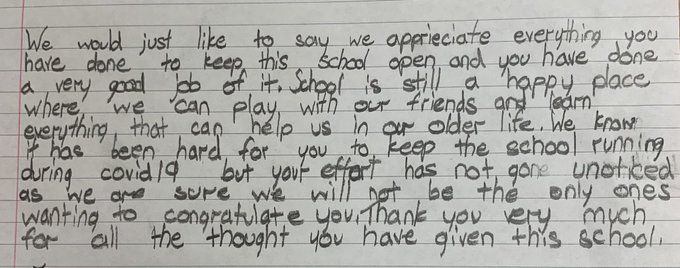 We would just like to say we apprieciate everything you
have done to keep this school open and you have done
a very good job of it. School is still a happy place
where we can play with our friends and learn
everything that can help us in our older life. We know
it has been hard for you to keep the school running
during covid19 but your effort has not gone unoticed
as we are sure we will not be the only ones
wanting to congratulate you. Thank you very much
for all the thought you have given this school.